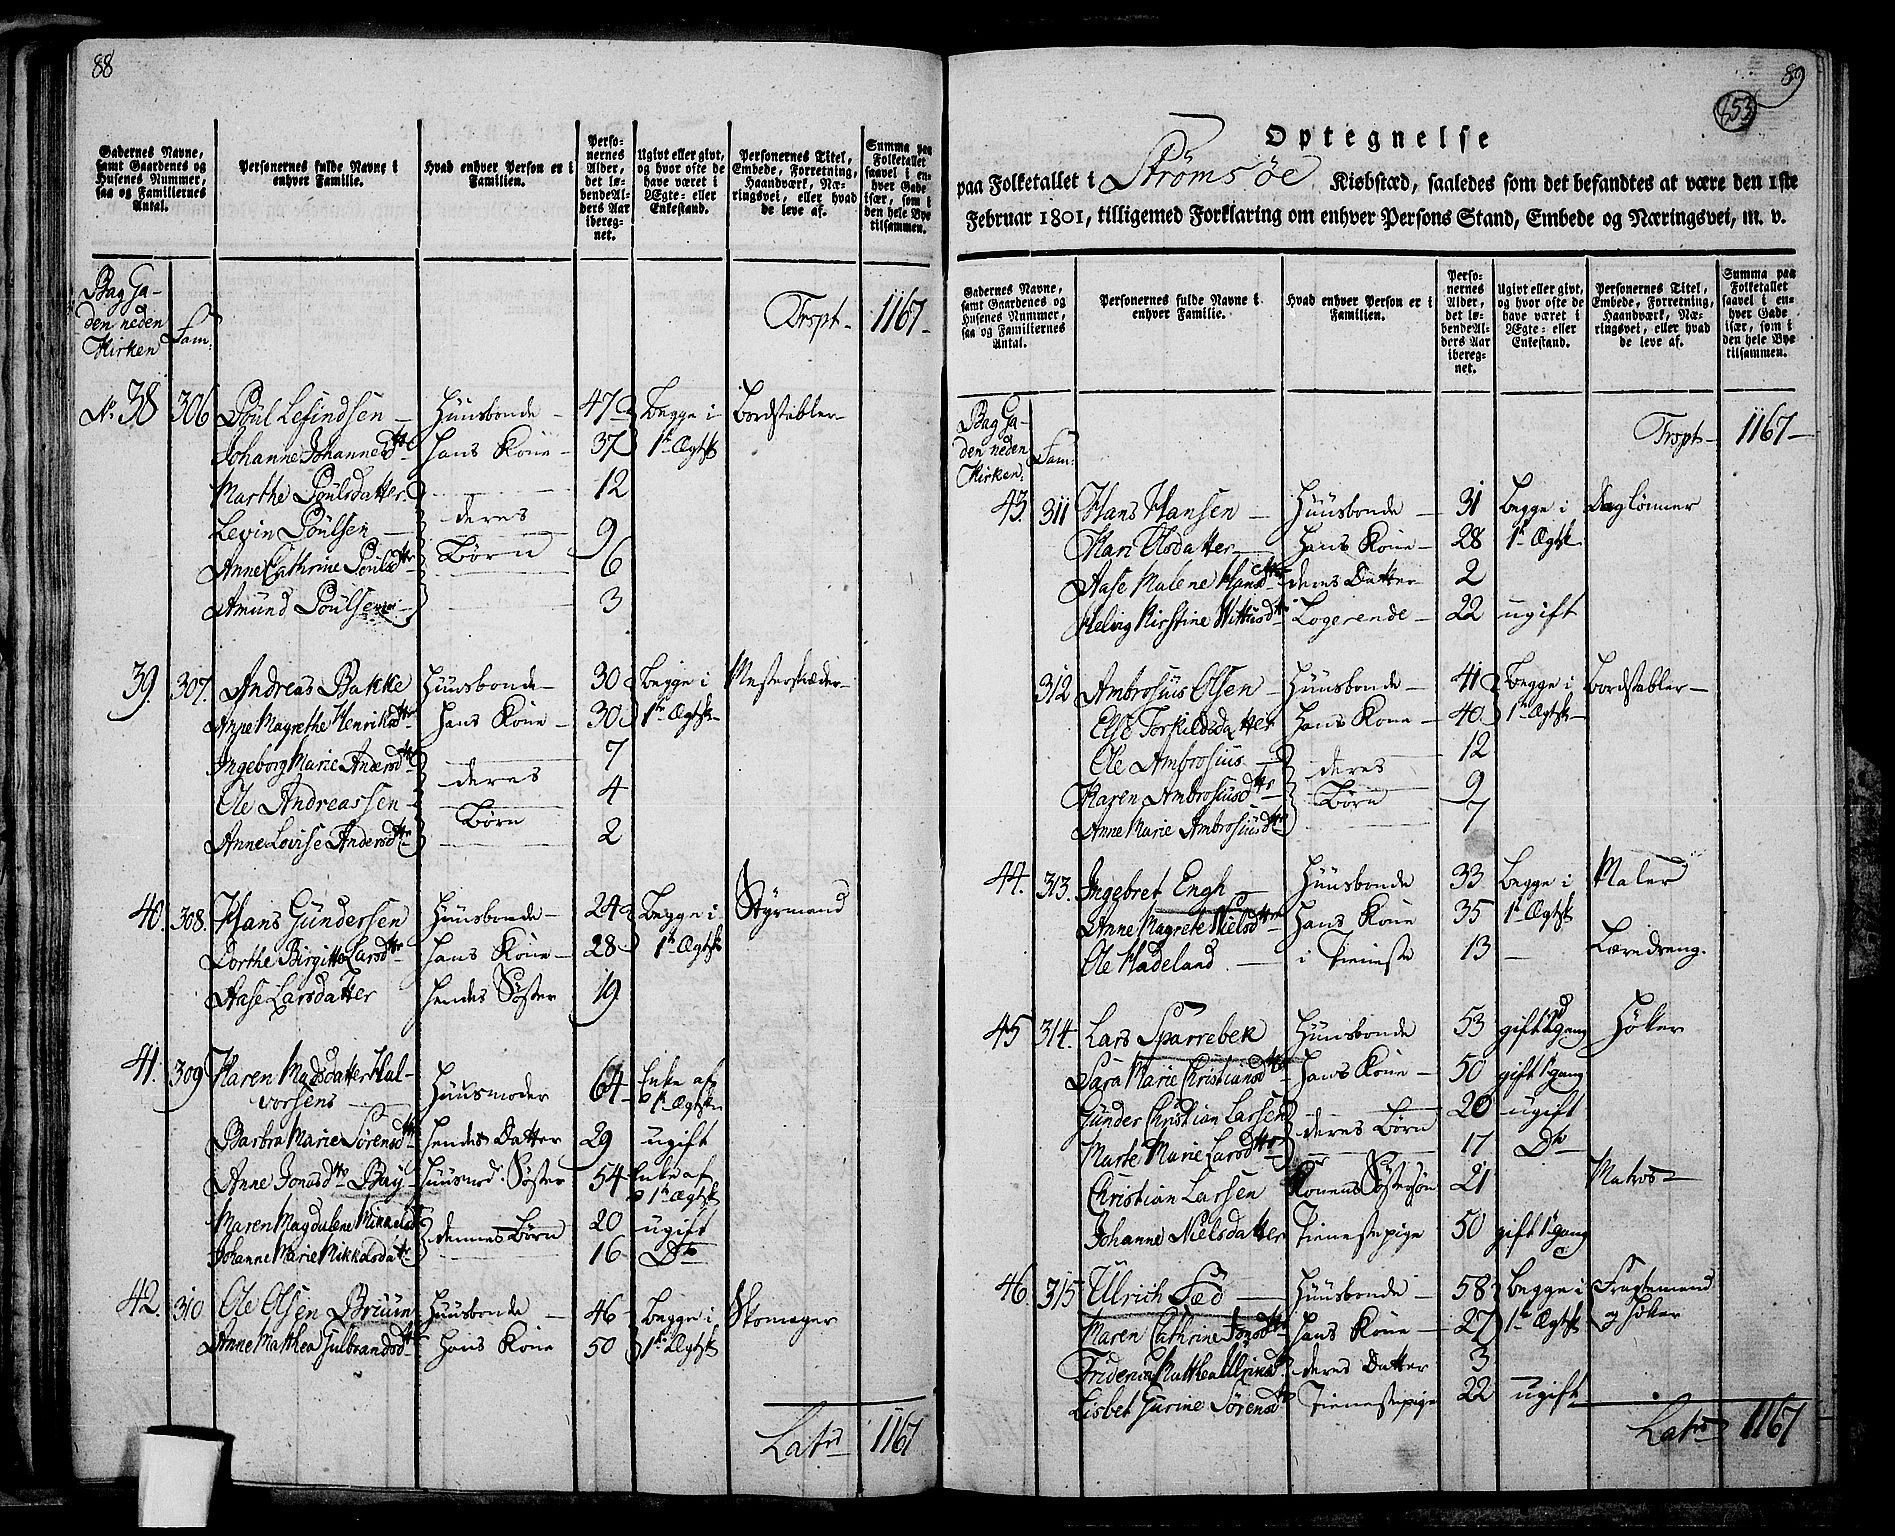 88
Gadernes Navne, samt Gaardenes og Husenes Nummer, saa og Familiernes Antal.
Personernes fulde Navne i enhver Familie.
Hvad enhver Person er i Familien.
Personernes Alder, det løbende Alders Aar iberegnet.
Ugivt eller givt, og hvor ofte de have været i Ægte- eller Enkestand.
Personernes Titel, Embede, Forretning, Haandværk, Næringsvei, eller hvad de leve af.
Summa paa Folketallet saavel i enhver Gade især, som i den hele Bye tilsammen.
Bag Ga-
den neden
Kirken Fam:
Trspt- 1167-
No 38 306 Poul Lefindsen - Huusbonde - 47 begge i bordstabler-
Johanne Johannesdtr hans Kone - 37 1te Ægtsk
Marthe Poulsdatter 12
Levin Poulsen deres 9
Anne Cathrine Poulsdtr Børn 6
Amund Poulsen 3
39. 307. Andreas Bakke Huusbonde- 30 begge i Mesterskræder-
Anne Magrethe Henriksdtr hans Kone - 30 1te Ægtsk-
Ingeborg Marie Andersdtr 7
Ole Andreassen deres 4
Anne Lovise Andersdtr Børn 2
40. 308. Hans Gundersen Huusbonde- 24 begge i Styrmand
Dorthe Birgitte Larsdtr hans Kone - 28 1te Ægtsk
Aase Larsdatter hendes Søster 19
41. 309 Karen Madsdatter Hal-
vorsens Huusmoder 64 Enke af 1te Ægtsk
Barbra Marie Sørensdtr hendes Datter 29 ugift
Anne Jonasdtr Bay Huusmod: Søster 54 Enke af 1te Ægtsk
Maren Magdalene Mikkelsdtr dennes Børn 20 ugift
Johanne Marie Mikkelsdatter 16 Do
42. 310 Ole Olsen Bruun Huusbonde - 46 begge i Skomager
Anne Matthea Gulbrandsdtr hans Kone 50 1te Ægtsk
Latus 1167
89
153
Optegnelse
paa Folketallet i Strømsøe Kiøbstæd, saaledes som det befandtes at være den 1ste
Februar 1801, tilligemed Forklaring om enhver Persons Stand, Embede og Næringsvei, m. v.
Gadernes Navne, samt Gaardenes og Husenes Nummer, saa og Familiernes Antal.
Personernes fulde Navne i enhver Familie.
Hvad enhver Person er i Familien.
Personernes Alder, det løbende Alders Aar iberegnet.
Ugivt eller givt, og hvor ofte de have været i Ægte- eller Enkestand.
Personernes Titel, Embede, Forretning, Haandværk, Næringsvei, eller hvad de leve af.
Summa paa Folketallet saavel i enhver Gade især, som i den hele Bye tilsammen.
Bag Ga-
den neden
Kirken. Fam:
Trspt- 1167-
43. 311 Hans Hansen - Huusbonde - 31 begge i Daglønner
Kari Olsdatter hans Kone - 28 1te Ægtsk
Aase Malene Hansdtr deres Datter 2
Helvig Kirstine Logerende - 22 ugift
312 Ambrosius Olsen - Huusbonde - 41 begge i bordstabler-
Else Torkildsdatter hans Kone - 40 1te Ægtsk-
Ole Ambrosius - deres 12
Karen Ambrosiusdtr Børn 9
Anne Marie Ambrosiusdtr 7
44. 313. Ingebret Engh Huusbonde 33 begge i Maler
Anne Magrete Nielsdtr hans Kone 35 1te Ægtsk
Ole Hadeland - i Tieneste 13 - Læredreng.
45 314. Lars Sparrebek Huusbonde 53 gift 2d gang Høker
Sara Marie Christiansdtr hans Kone - 50 gift 1te gang
Gunder Christian Larsen deres Børn 20 ugift
Marte Marie Larsdtr 17 Do
Christian Larsen Konens Søstersøn 21 Matros-
Johanne Nielsdatter Tienestepige 50 gift 1te gang
46. 315 Ullrich Sæd - Huusbonde - 58 begge i Fragtemand
Maren Cathrine hans Kone - 27 1te Ægtsk og Høker
deres Datter 3
Lisbet Gurine Sørensdtr Tienestepige 22 ugift
Latus 1167